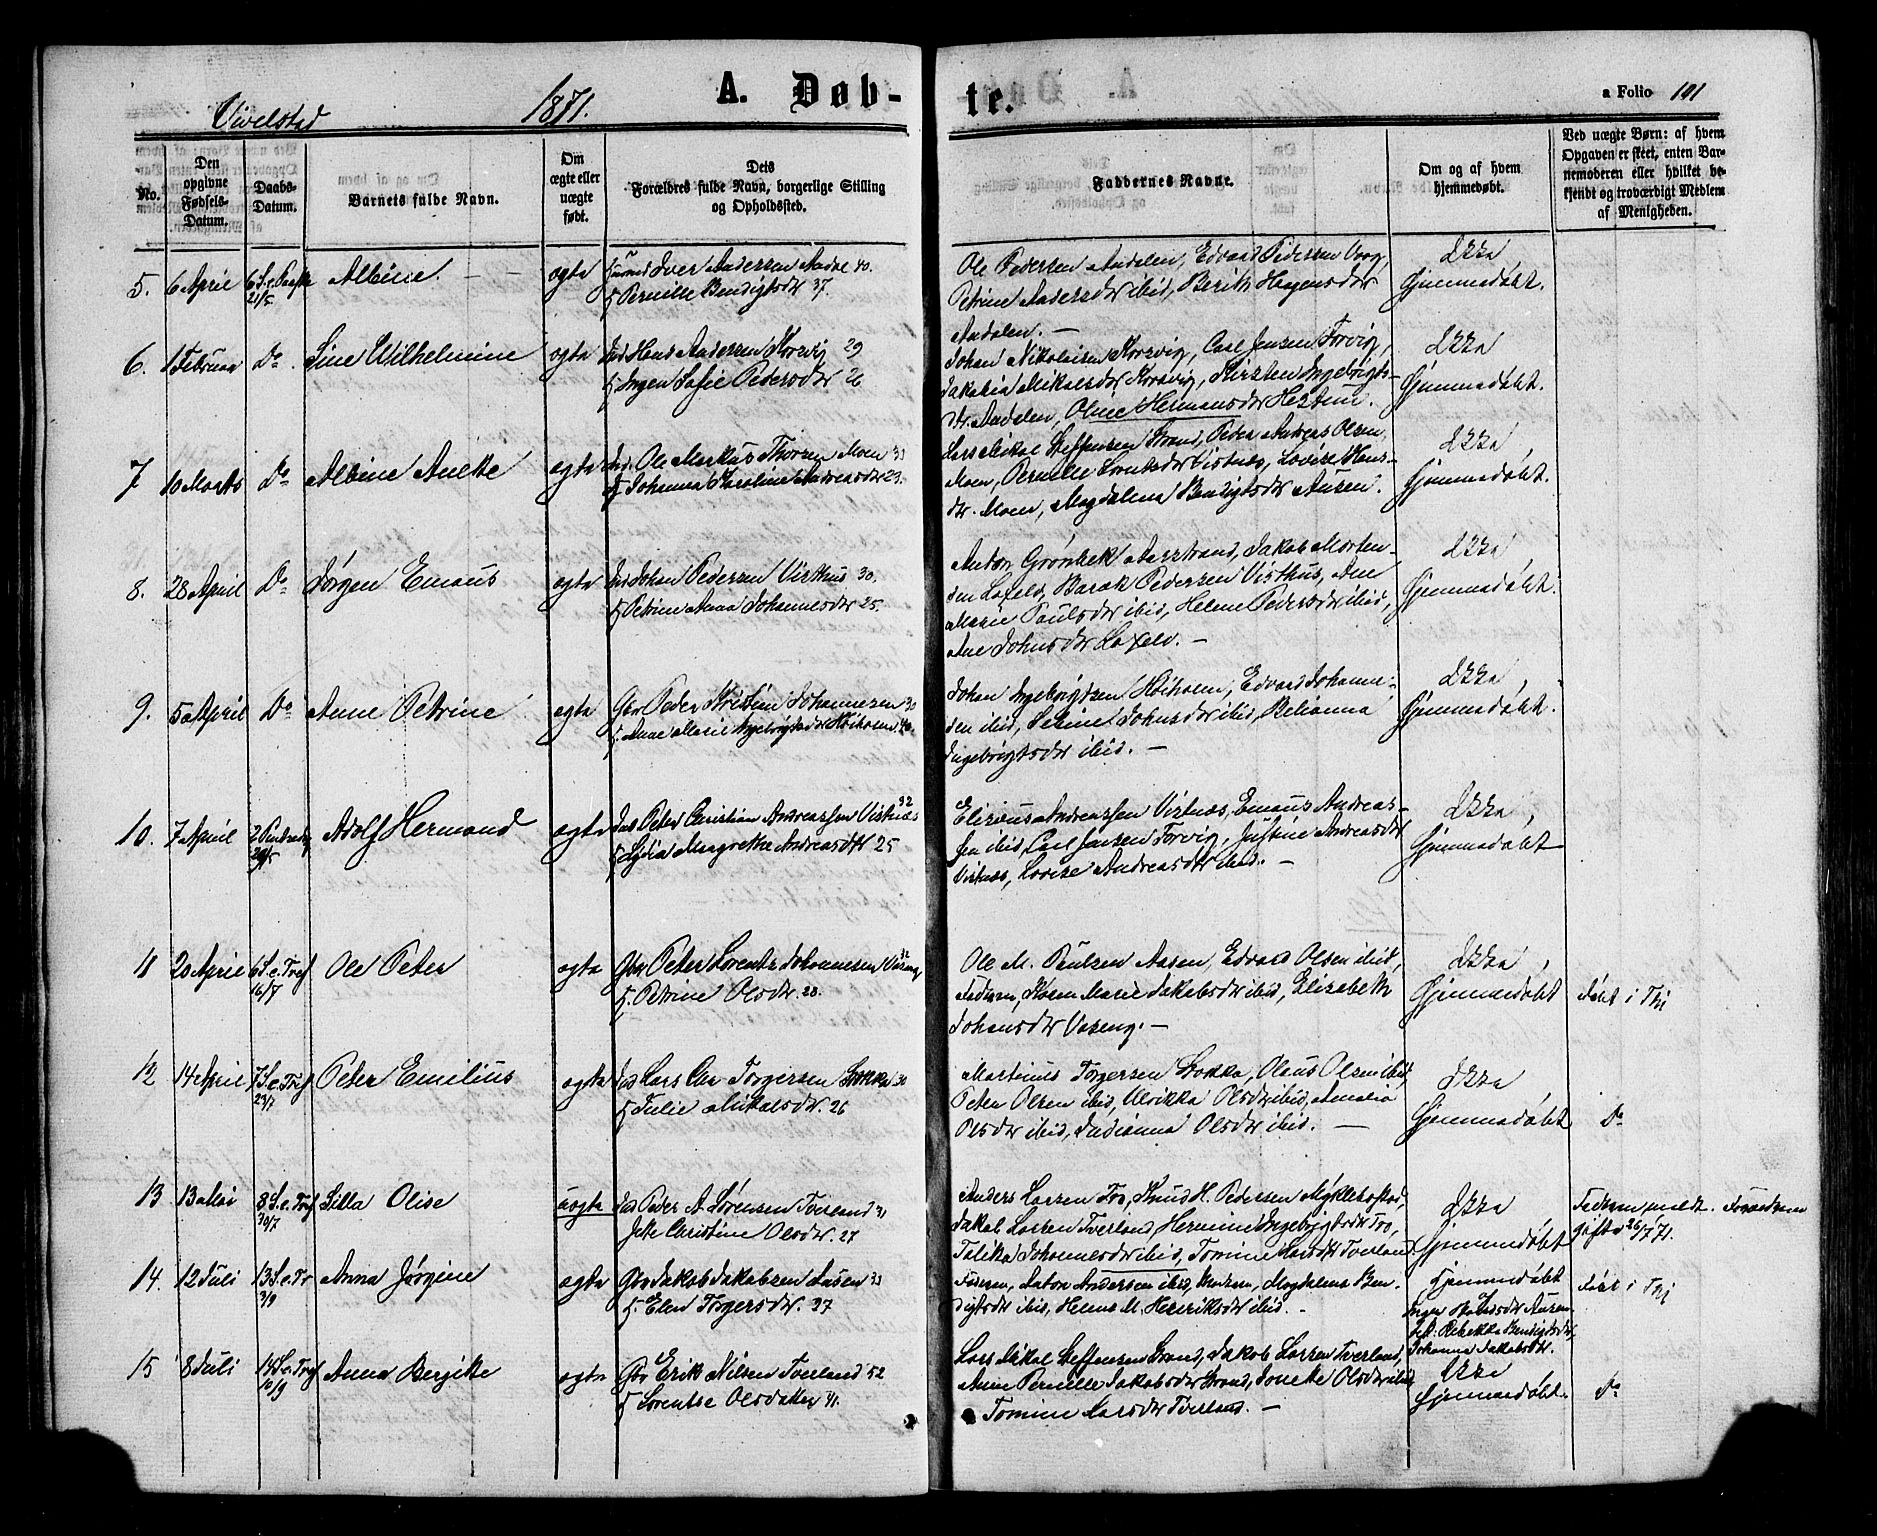 Vivelstad 1871. A. Døb-
te.
a Folio 191
No.
Den opgivne Fødsels-Datum.
Daabs-Datum.
Barnets fulde Navn.
Om ægte eller uægte født.
Dets Forældres fulde Navn, borgerlige Stilling og Opholdssted.
Faddernes Navne.
Om og af hvem hjemmedøbt.
Ved uægte Børn: af hvem Opgaven er skeet, enten Barnemoderen eller hvilket bekjendt og troværdigt Medlem af Menigheden.
5. 6 April 6 S. e. Paaske 21/5 Albine. ægte Iver Andersen Aadal 40.
Pernille Bendigtsdtr 37.
Ole Pedersen Aadalen, Edvard Pedersen
Petrine Andersdtr ibid, Berith Hagensdtr
Aadalen. —
Ikke
hjemmedøbt.
6. 1 Februar Do. Sine Wilhelmine ægte Ind Hans Andersen Korsvig 29
Ingen Sofie Pedersdtr 26
Johan Nikolaisen Korsvig, Carl Jensen Forvig,
Jakobia Mikalsdtr Korsvig, Kirsten Ingebrigts-
dtr. Aadalen, Oline Hermansdtr Hestun.
Ikke
hjemmedøbt.
7 10 Marts Do Albine Anette ægte Ind. Ole Markus Thorsen Moen 33
Johanna Karoline Andreasdtr 29.
Lars Mikal Steffensen Strand, Peder Andreas Olsen
Moen, Pernille Lorntsdtr Vistnæs, Lovise Hans-
dtr. Moen, Magdalena Bendigtsdtr Aasen.
Ikke,
hjemmedøbt.
8. 28 April Do Jørgen Emaus ægte Ind Johan Pedersen Visthus 30.
Petrine Anna Johannesdtr 25.
Anton Grønbek Aasstrand, Jakob Morten-
sen Laxelv, Barak Pedersen Visthus, Ane
Marie Paulsdtr ibid, Helene Pedersdtr ibid,
Ane Johnsdtr Laxelv. —
Ikke,
hjemmedøbt.
9. 5 April Do Anne Petrine ægte Gbr Peder Kristian Johannesen 30
Anne Marie Ingebrigtsdtr Høiholm 40.
Johan Ingebrigtsen Høiholm, Edvard Johanne-
sen ibid, Serine Johnsdtr ibid, Behanna
Ingebrigtsdtr ibid. —
Ikke,
hjemmedøbt.
10. 7 April 2 Pintsedag 29/5 Adolf Hermand ægte Ind Peter Christian Andreassen Vistnæs 32
Lydia Magrethe Andreasdtr 25
Elisæus Andreassen Vistnæs, Emaus Andreas-
sen ibid, Carl Jensen Forvig, Justine Andreasdtr
Vistnæs, Lovise Andreasdtr ibid. —
Ikke,
hjemmedøbt
11 20 April 6 S. e. Tref 16/7 Ole Peter ægte Gbr Peter Lorents Johannesen Vaseng 32
Petrine Olsdtr. 28.
Ole M. Paulsen Aasen, Edvard Olsen ibid,
Faderen, Karen Marie Jakobsdtr ibid, Elisabeth
Johansdtr Vaseng. —
Ikke,
hjemmedøbt
Født i Thj
12 14 April 7 S. e. Tref 23/7 Peter Emilius ægte Ind Lars Chr Torgersen Stokka 30
Julie Mikalsdtr. 26
Martinus Torgersen Stokka, Olaus Olsen ibid,
Peter Olsen ibid, Ulrikka Olsdtr ibid, Amalia
Olsdtr ibid, Indianna Olsdtr ibid. —
Ikke
hjemmedøbt
Do
13 13 Mai 8 S. e. Tref 30/7 Silla Olise uægte Ind Peder A. Sørensen Tverland 31
Jete Christine Olsdtr. 27
Anders Larsen Tro, Knud H. Pedersen Mykkebostad,
Jakob Larsen Tverland, Hermine Ingebrigtsdtr Tro,
Talika Johannesdtr ibid, Tomine Larsdtr Tverland
Ikke
hjemmedøbt
Faderen meldt. Forældrene
gifte 26/7 71.
14. 12 Juli 13 S. e. Tr 3/9 Anna Jørgine ægte Gbr Jakob Jakobsen Aasen 33
Elen Torgersdtr. 37
Faderen, Anton Andersen ibid, Magdalena Ben-
digtsdtr ibid, Helene M. Henriksdtr ibid. —
hjemmedøbt
Rebekka Bendigtsdtr,
Johanna Jakobsdtr.
Født i Thj
15 8 Juli 14 S. e. Tref 10/9 Anna Bergitte ægte Gbr Erik Nilsen Tverland 52
Lorentse Olsdatter 41.
Lars Mikal Steffensen Strand, Jakob Larsen Tverland,
Anne Pernille Jakobsdtr Strand, Jonette Olsdtr ibid
Tomine Larsdtr Tverland. —
Ikke
hjemmedøbt.
Do